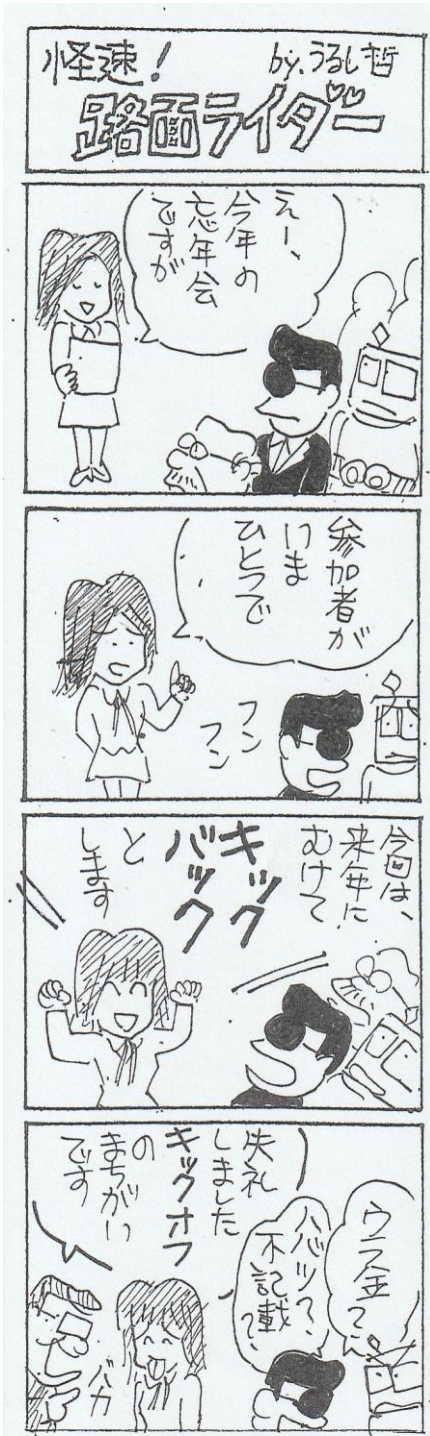 怪速!
by.うるし哲
路面ライダー
えー、
今年の
忘年会
ですが
参加者が
いま
ひとつで
フン
フン
今回は、
来年に
むけて
キック
バック
と
します
ウラ金?
ハバツ?
不記載?
失礼
しました
キックオフ
の
まちがい
です
バカ